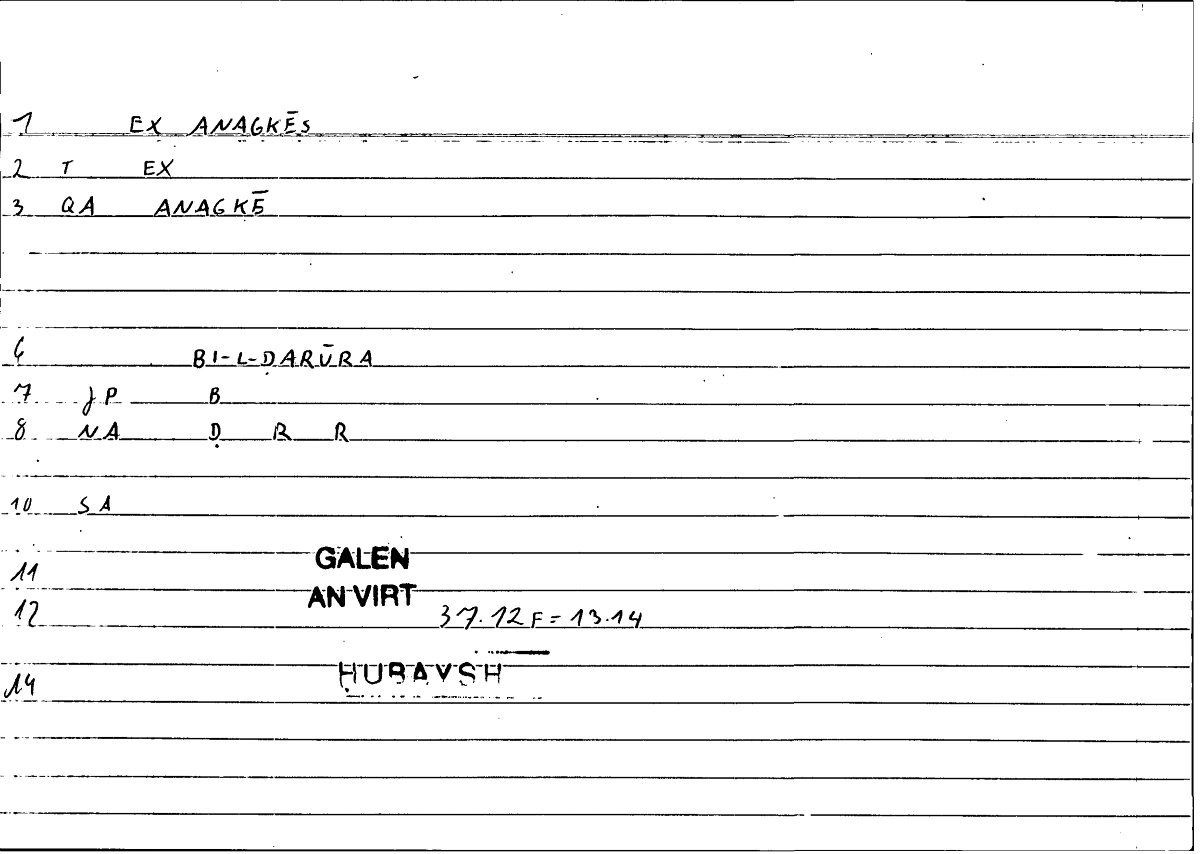 1 EX ANAGKĒS
2 T EX
3 QA ANAGKĒ
6 BI-L-ḌARŪRA
7 JP B
8 NA Ḍ R R
10 SA
11 GALEN
AN VIRT
12 37.12 F = 13.14
14 ḤUBAYSH